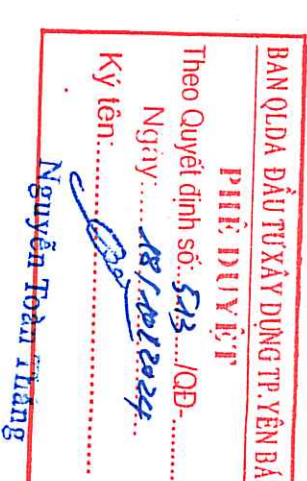 BAN QLDA ĐẦU TƯ XÂY DỰNG TP. YÊN BÁ
PHÊ DUYỆT
Theo Quyết định số:...513..../QĐ-............
Ngày:....18/10/2024....
Ký tên:....................................
Nguyễn Toàn Thắng